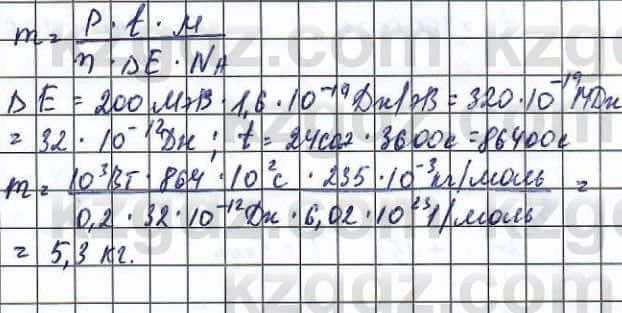 m = P · t · M / η · ΔE · NA
ΔE = 200 МэВ · 1,6 · 10⁻¹⁹ Дж/эВ = 320 · 10⁻¹⁹ МДж
= 32 · 10⁻¹² Дж; t = 24час · 3600с = 86400с
m = 10³Вт · 864 · 10²с · 235 · 10⁻³кг/моль / 0,2 · 32 · 10⁻¹²Дж · 6,02 · 10²³1/моль =
= 5,3 кг.